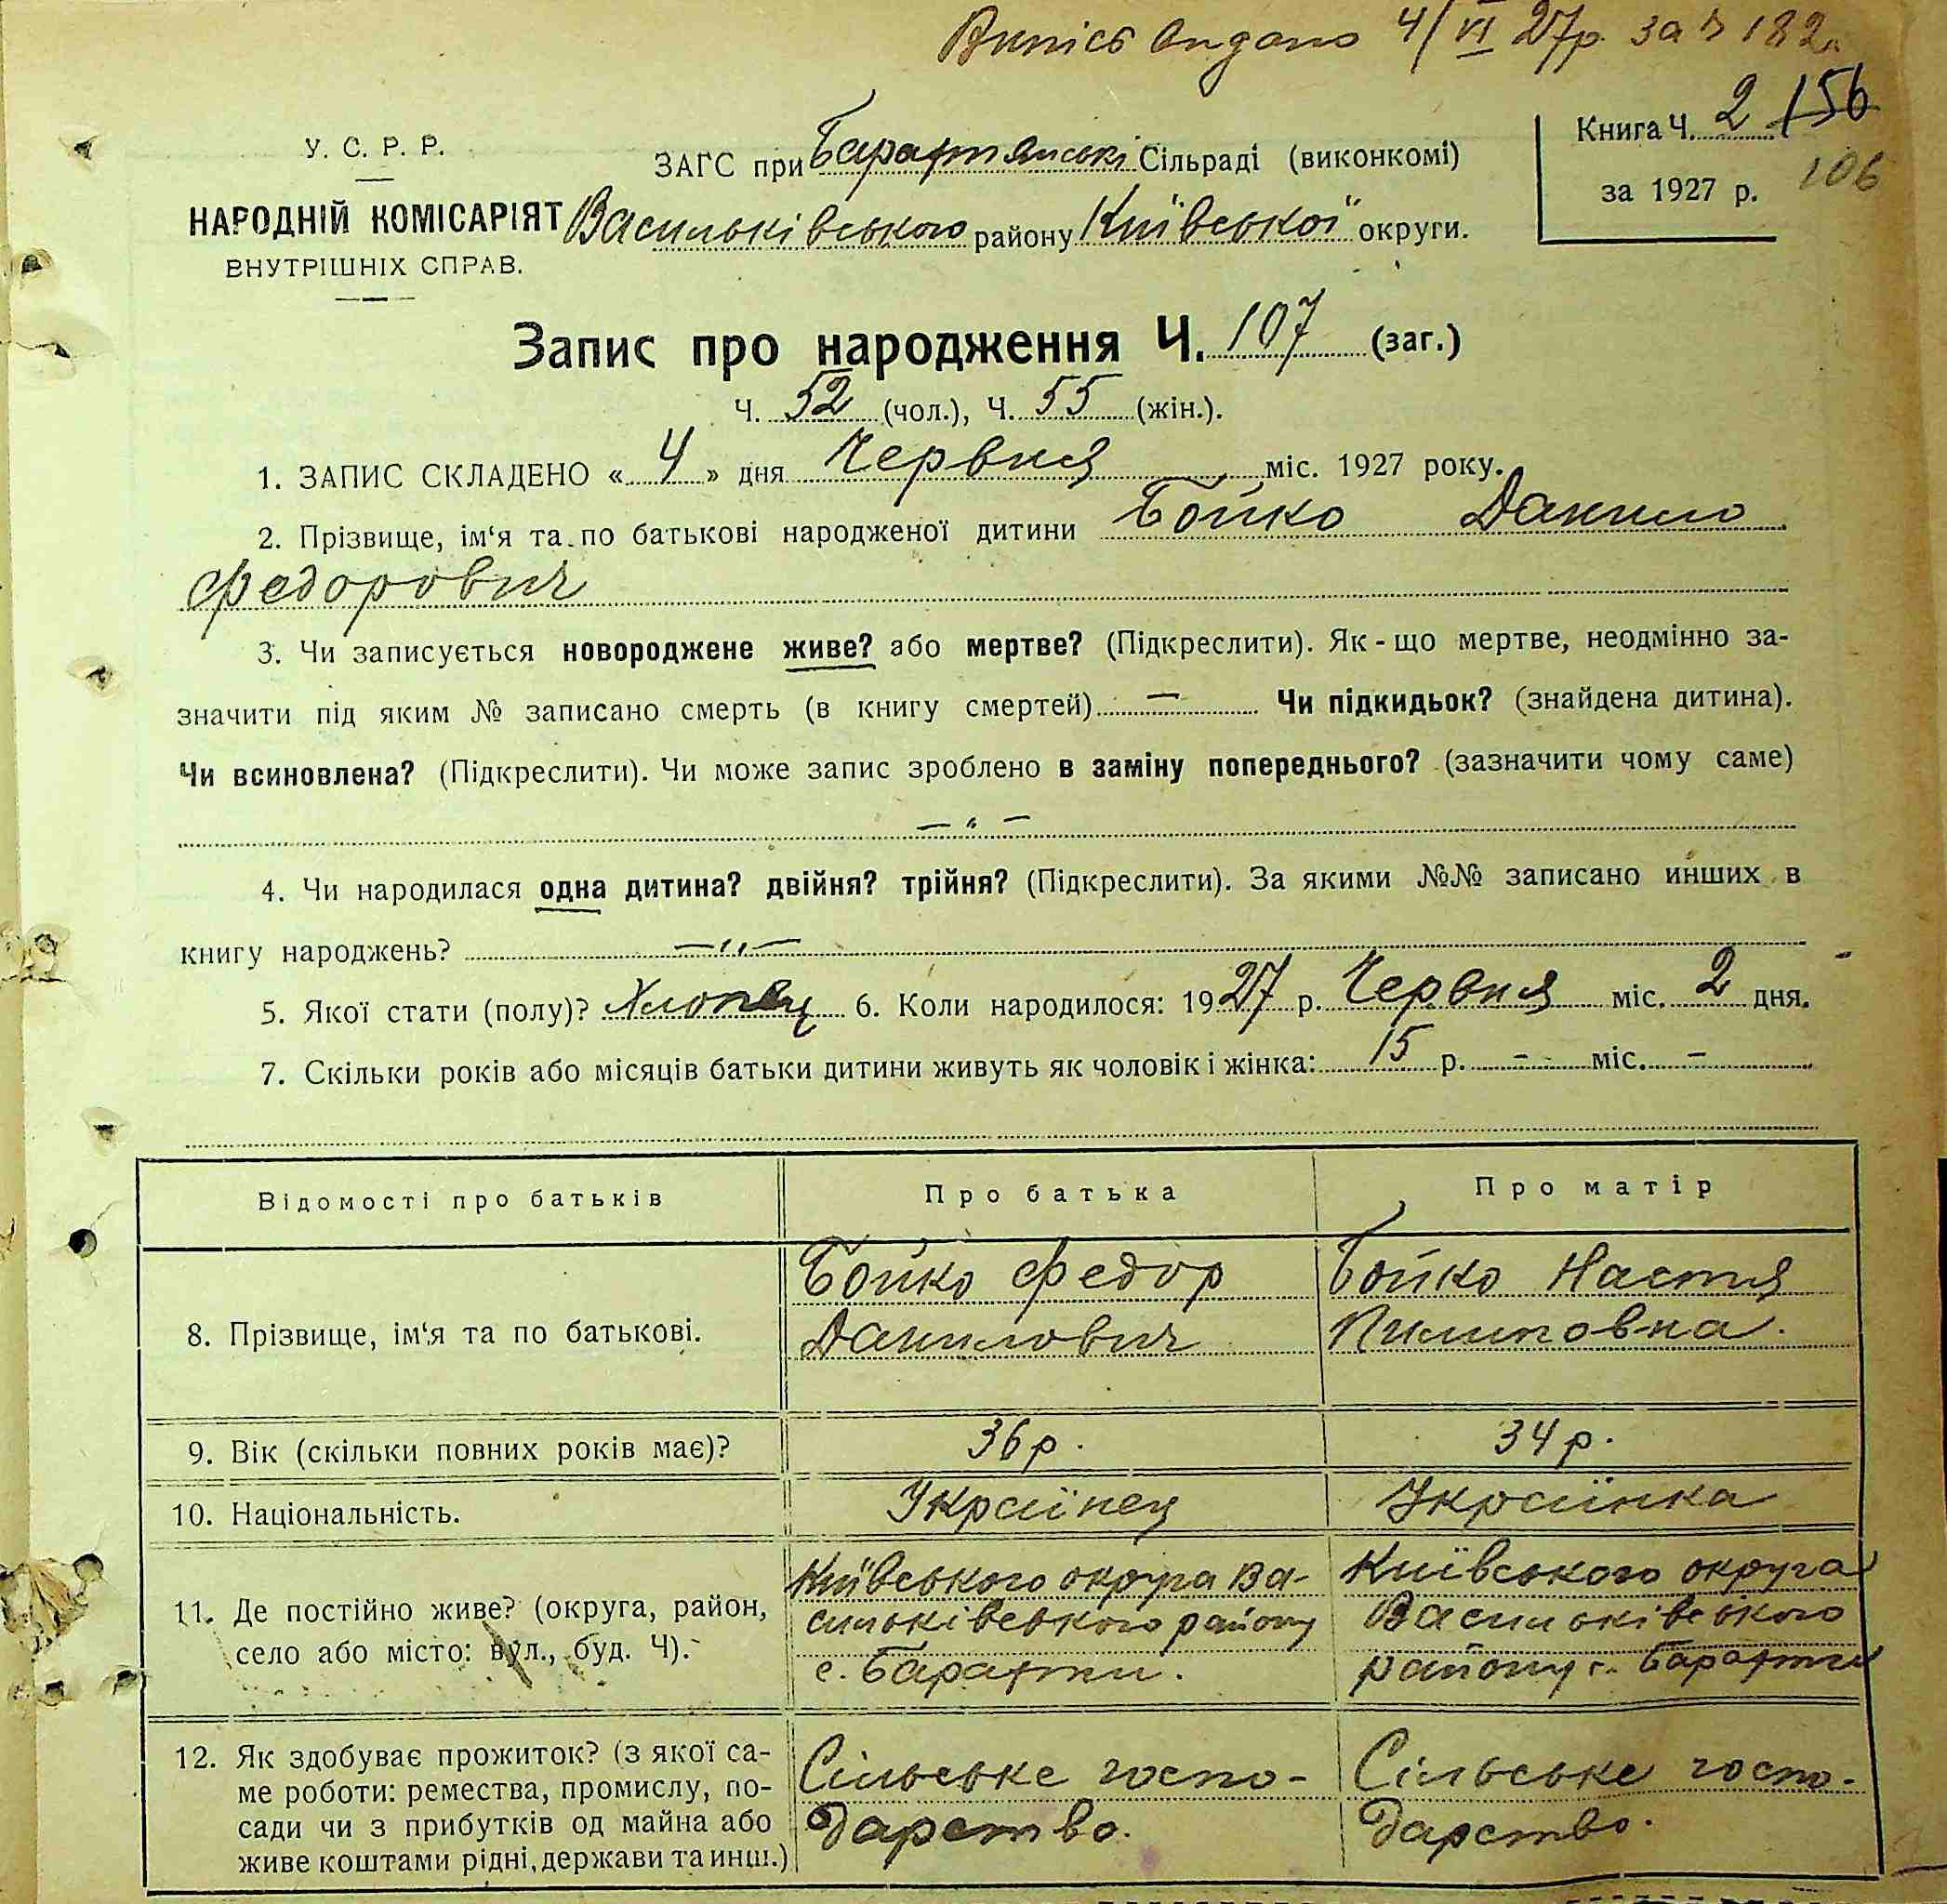 Випісь видано 4/VI 27р. за № 182
У. С. Р. Р.
НАРОДНІЙ КОМІСАРІЯТ
ВНУТРІШНІХ СПРАВ.
ЗАГС при Барахтянські Сільраді (виконкомі)
Васильківського району Київської округи.
Книга Ч. 2 /56
за 1927 р. 106
Запис про народження Ч. 107 (заг.)
Ч. 52 (чол.), Ч. 55 (жін.).
1. ЗАПИС СКЛАДЕНО « 4 » дня Червня міс. 1927 року.
2. Прізвище, ім‘я та по батькові народженої дитини Бойко Данило
Федорович
3. Чи записується новороджене живе? або мертве? (Підкреслити). Як-що мертве, неодмінно за-
значити під яким № записано смерть (в книгу смертей) — Чи підкидьок? (знайдена дитина).
Чи всиновлена? (Підкреслити). Чи може запис зроблено в заміну попереднього? (зазначити чому саме)
— „ —
4. Чи народилася одна дитина? двійня? трійня? (Підкреслити). За якими №№ записано инших в
книгу народжень? — „ —
5. Якої стати (полу)? Хлопец 6. Коли народилося: 1927 р. Червня міс. 2 дня.
7. Скільки років або місяців батьки дитини живуть як чоловік і жінка: 15 р. - міс. -
Відомості про батьків Про батька Про матір
8. Прізвище, ім‘я та по батькові.
Бойко Федор
Данилович
Бойко Настя
Пилиповна.
9. Вік (скільки повних років має)? 36 р. 34 р.
10. Національність. Українец Українка
11. Де постійно живе? (округа, район,
село або місто: вул., буд. Ч).
Київського округа Ва-
сильківського району
с. Барахти.
Київського округа
Васильківського
району с. Барахти
12. Як здобуває прожиток? (з якої са-
ме роботи: ремества, промислу, по-
сади чи з прибутків од майна або
живе коштами рідні, держави та инш.)
Сільське госпо-
дарство.
Сільське госпо-
дарство.